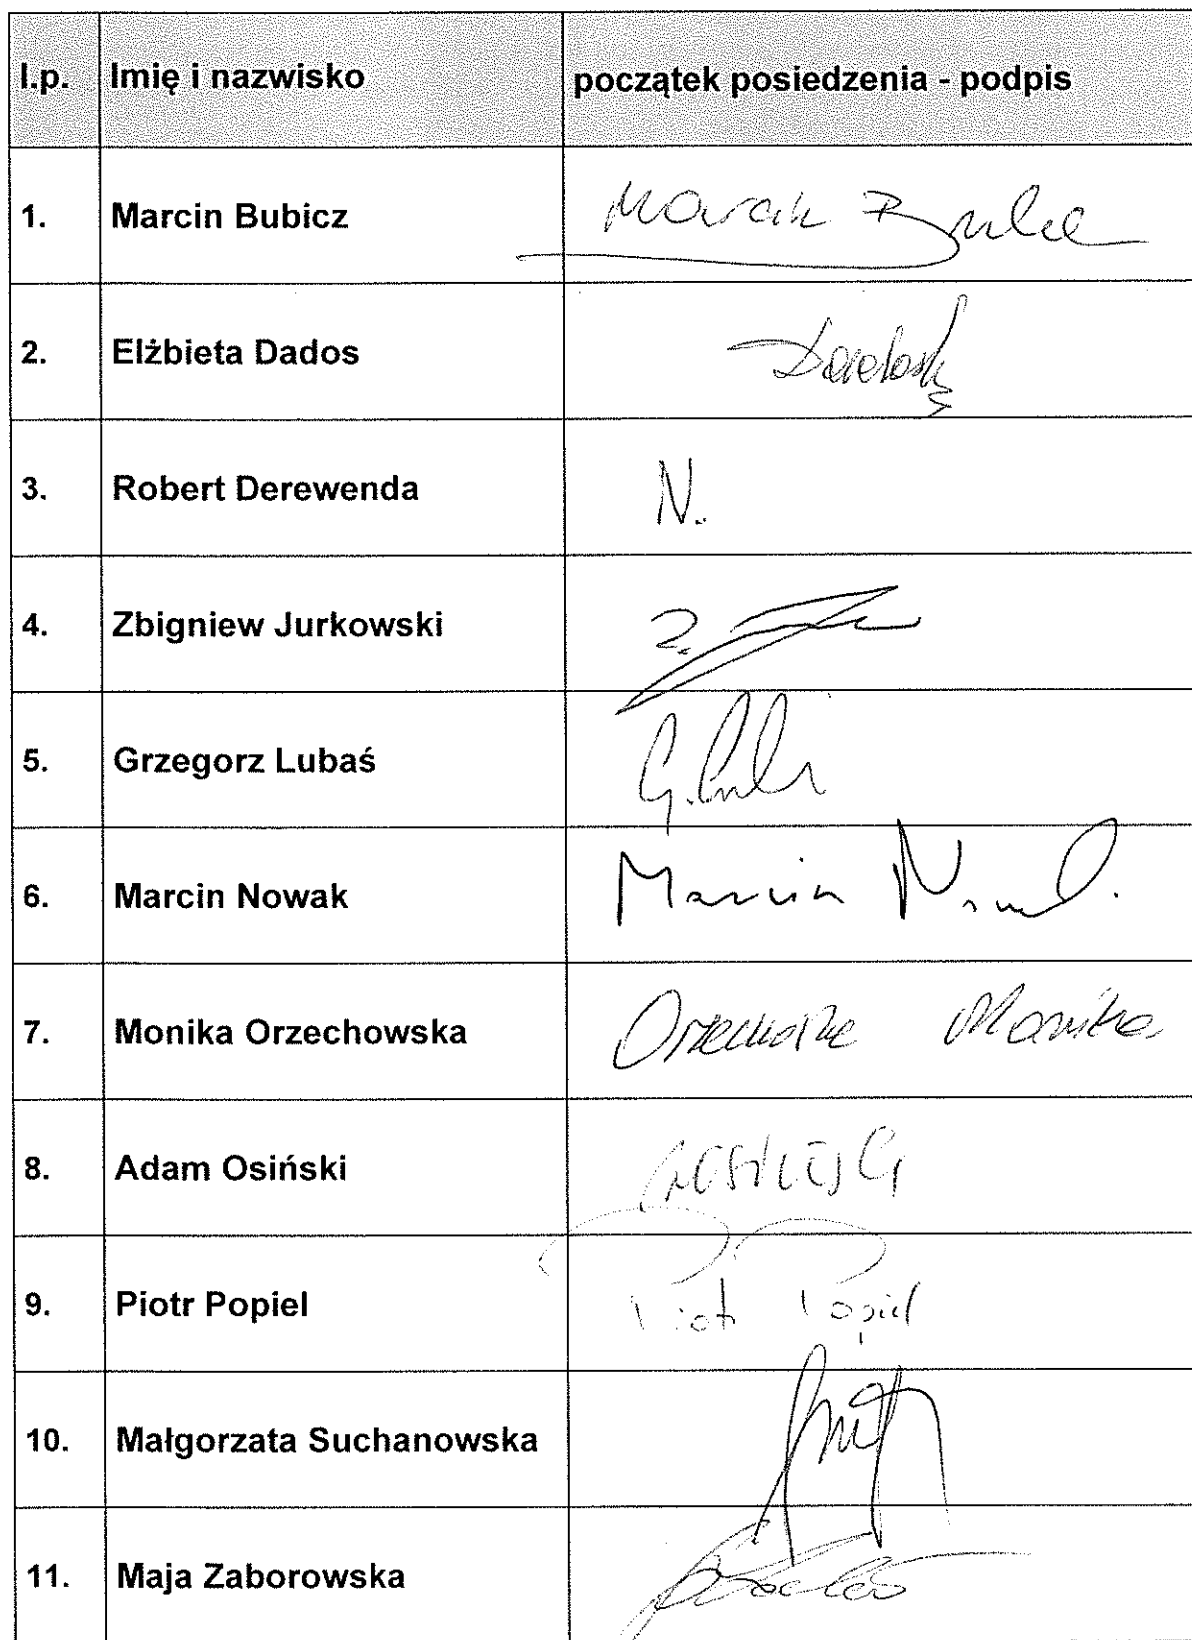 l.p. Imię i nazwisko początek posiedzenia - podpis
1. Marcin Bubicz
2. Elżbieta Dados
3. Robert Derewenda N.
4. Zbigniew Jurkowski
5. Grzegorz Lubaś
6. Marcin Nowak Marcin
7. Monika Orzechowska Monika
8. Adam Osiński
9. Piotr Popiel Piotr Popiel
10. Małgorzata Suchanowska
11. Maja Zaborowska